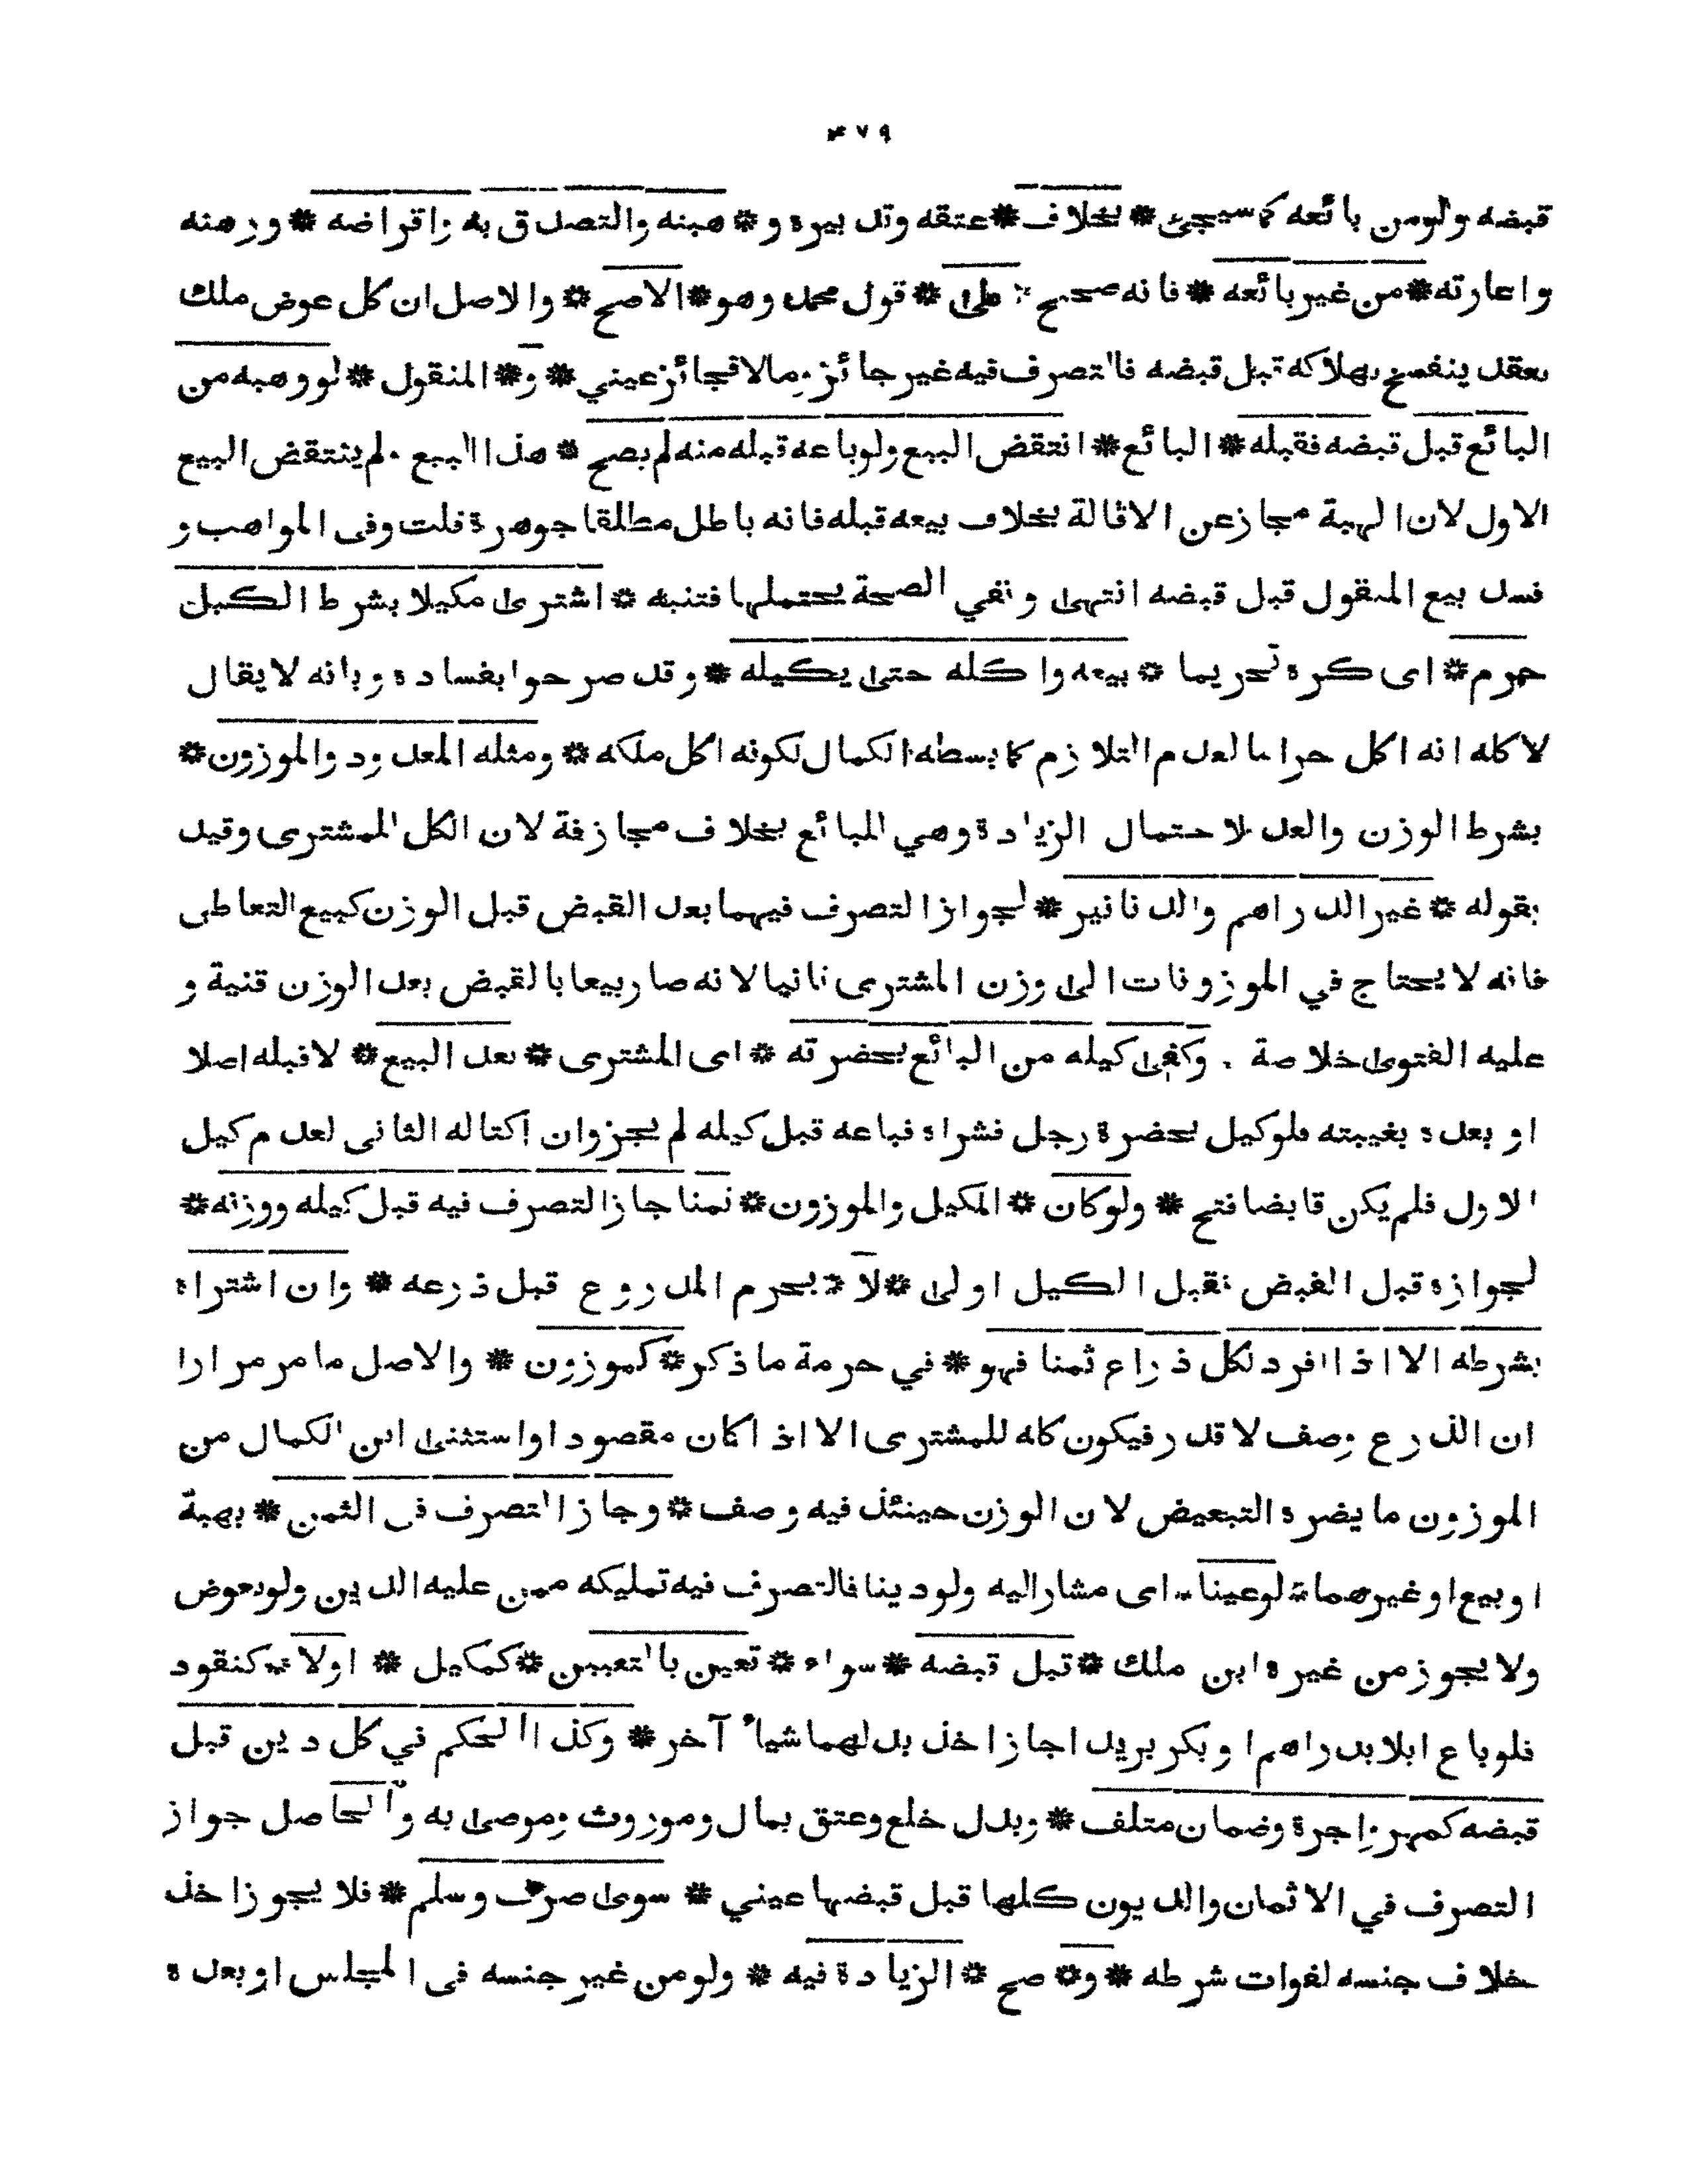 ٤٧٩
قبضه ولومن بائعه كما سيجئ * بخلاف * عتقه وتدبيره و * هبته والتصدق به واقراضه * ورهنه
واعارته * من غير بائعه * فانه صحيح * على * قول محمد وهو * الاصح * والاصل ان كل عوض ملك
بعقد ينفسخ بهلاكه قبل قبضه فالتصرف فيه غير جائز ومالا فجائز عيني * و * المنقول * لو وهبه من
البائع قبل قبضه فقبله * البائع * انتقض البيع ولو باعه قبله منه لم يصح * هذا البيع ولم ينتقض البيع
الاول لان الهبة مجاز عن الاقالة بخلاف بيعه قبله فانه باطل مطلقا جوهرة قلت وفى المواهب و
فسد بيع المنقول قبل قبضه انتهى ونفي الصحة يحتملها فتنبه * اشترى مكيلا بشرط الكيل
حرم * اى كره تحريما * بيعه واكله حتى يكيله * وقد صرحوا بفساده وبانه لا يقال
لاكله انه اكل حراما لعدم التلازم كما بسطه الكمال لكونه اكل ملكه * ومثله المعدود والموزون *
بشرط الوزن والعد لاحتمال الزيادة وهي للبائع بخلاف مجازفة لان الكل للمشترى وقيد
بقوله * غير الدراهم والدنانير * لجواز التصرف فيهما بعد القبض قبل الوزن كبيع التعاطى
فانه لا يحتاج في الموزونات الى وزن المشترى ثانيا لانه صار بيعا بالقبض بعد الوزن قنية و
عليه الفتوى خلاصة . وكفى كيله من البائع بحضرته * اى المشترى * بعد البيع * لا قبله اصلا
او بعده بغيبته فلو كيل بحضرة رجل فشراه فباعه قبل كيله لم يجز وان اكتاله الثانى لعدم كيل
الاول فلم يكن قابضا فتح * ولوكان * المكيل والموزون * ثمنا جاز التصرف فيه قبل كيله ووزنه *
لجوازه قبل القبض فقبل الكيل اولى * لا * يحرم المذروع قبل ذرعه * وان اشتراه
بشرطه الا اذا افرد لكل ذراع ثمنا فهو * في حرمة ما ذكر * كموزون * والاصل ما مر مرارا
ان الذرع وصف لا قدر فيكون كله للمشترى الا اذا كان مقصودا واستثنى ابن الكمال من
الموزون ما يضره التبعيض لان الوزن حينئذ فيه وصف * وجاز التصرف فى الثمن * بهبة
او بيع او غيرهما * لو عينا * اى مشارا اليه ولو دينا فالتصرف فيه تمليكه ممن عليه الدين ولو بعوض
ولا يجوز من غيره ابن ملك * قبل قبضه * سواء * تعين بالتعيين * كمكيل * اولا * كنقود
فلو باع ابلا بدراهم او بكر بريد اجاز اخذ بدلهما شيأ آخر * وكذا الحكم في كل دين قبل
قبضه كمهر واجرة وضمان متلف * وبدل خلع وعتق بمال وموروث وموصى به والحاصل جواز
التصرف في الاثمان والديون كلها قبل قبضها عيني * سوى صرف وسلم * فلا يجوز اخذ
خلاف جنسه لفوات شرطه * و * صح * الزيادة فيه * ولو من غير جنسه فى المجلس او بعده